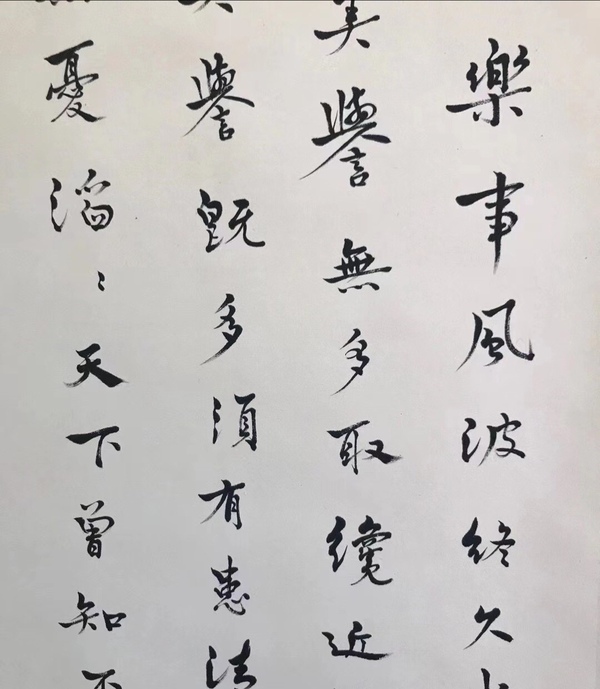 樂事風波終久
美譽無多取纔近
譽既多須有患清
憂滔〻天下曾知否